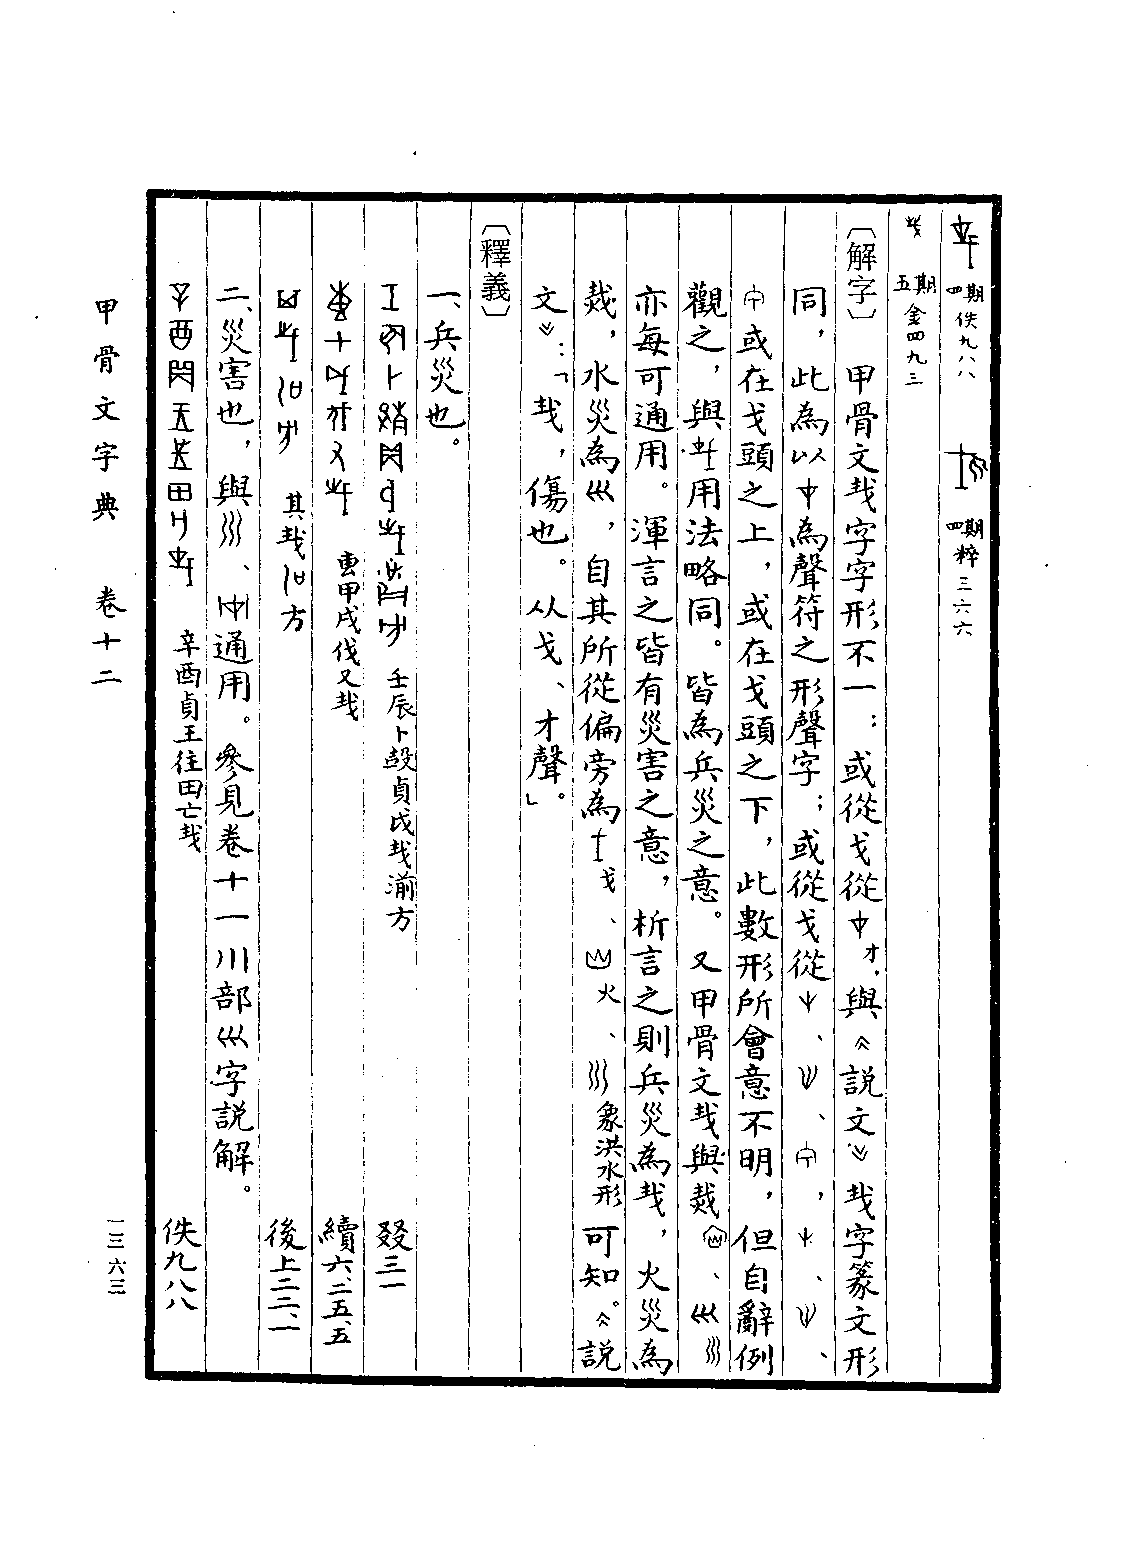 四期佚九八八　四期粹三六六
五期金四九三
〔解字〕甲骨文𢦏字字形不一：或從戈從才，與《說文》𢦏字篆文形
同，此為以為聲符之形聲字；或從戈從、、，、、
或在戈頭之上，或在戈頭之下，此數形所會意不明，但自辭例
觀之，與用法略同。皆為兵災之意。又甲骨文𢦏與烖、巛
亦每可通用。渾言之皆有災害之意，析言之則兵災為𢦏，火災為
烖，水災為巛，自其所從偏旁為戈、火、象洪水形可知。《說
文》：「𢦏，傷也。从戈、才聲。」
〔釋義〕
一、兵災也。
壬辰卜㱿貞戉𢦏湔方　殷三一
叀甲戌伐又𢦏　續六、二五、五
其𢦏方　後上二二、一
二、災害也，與、通用。參見卷十一川部巛字說解。
辛酉貞王往田亡𢦏　佚九八八
甲骨文字典　卷十二
一三六三